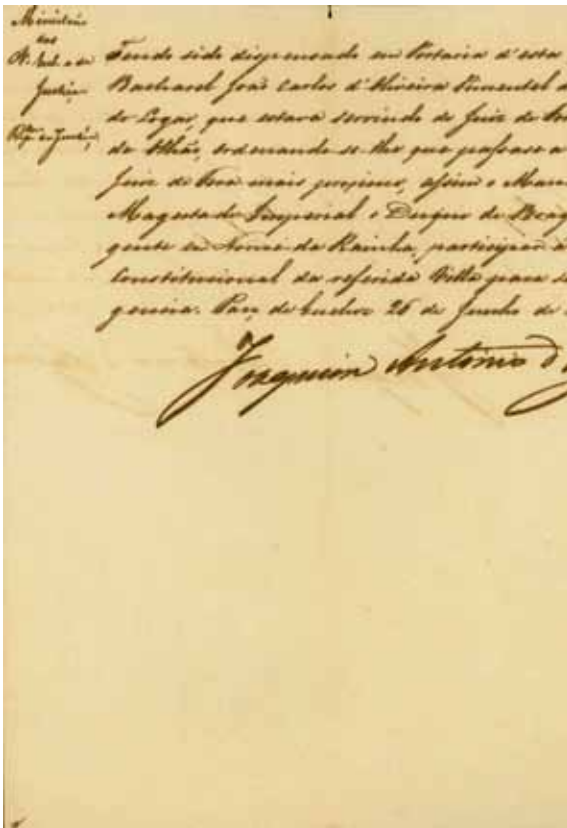 Ministerio
dos
N. Eccl. e da
Justiça
Rep.am da Justiça
Tendo sido dispensado em Portaria d'esta
Bacharel João Carlos d'Oliveira Pimentel
do Logar, que estava servindo de Juiz de
de Olhão, ordenando-se-lhe que passasse a
Juiz de Fora mais proximo, assim o
Magestade Imperial o Duque de
gente em Nome da Rainha, participar á
Constitucional da referida Villa para
gencia. Paço de 26 de Junho de
Joaquim Antonio d'